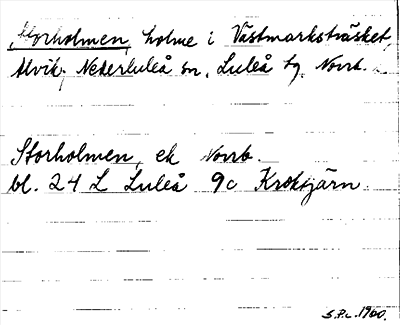 Storholmen, holme i Västmarksträsket,
Alvik, Nederluleå sn, Luleå tg, Norrb.
Storholmen, ek Norrb.
bl. 24 L Luleå 9c Kroksjärn
S.P.L. 1960.